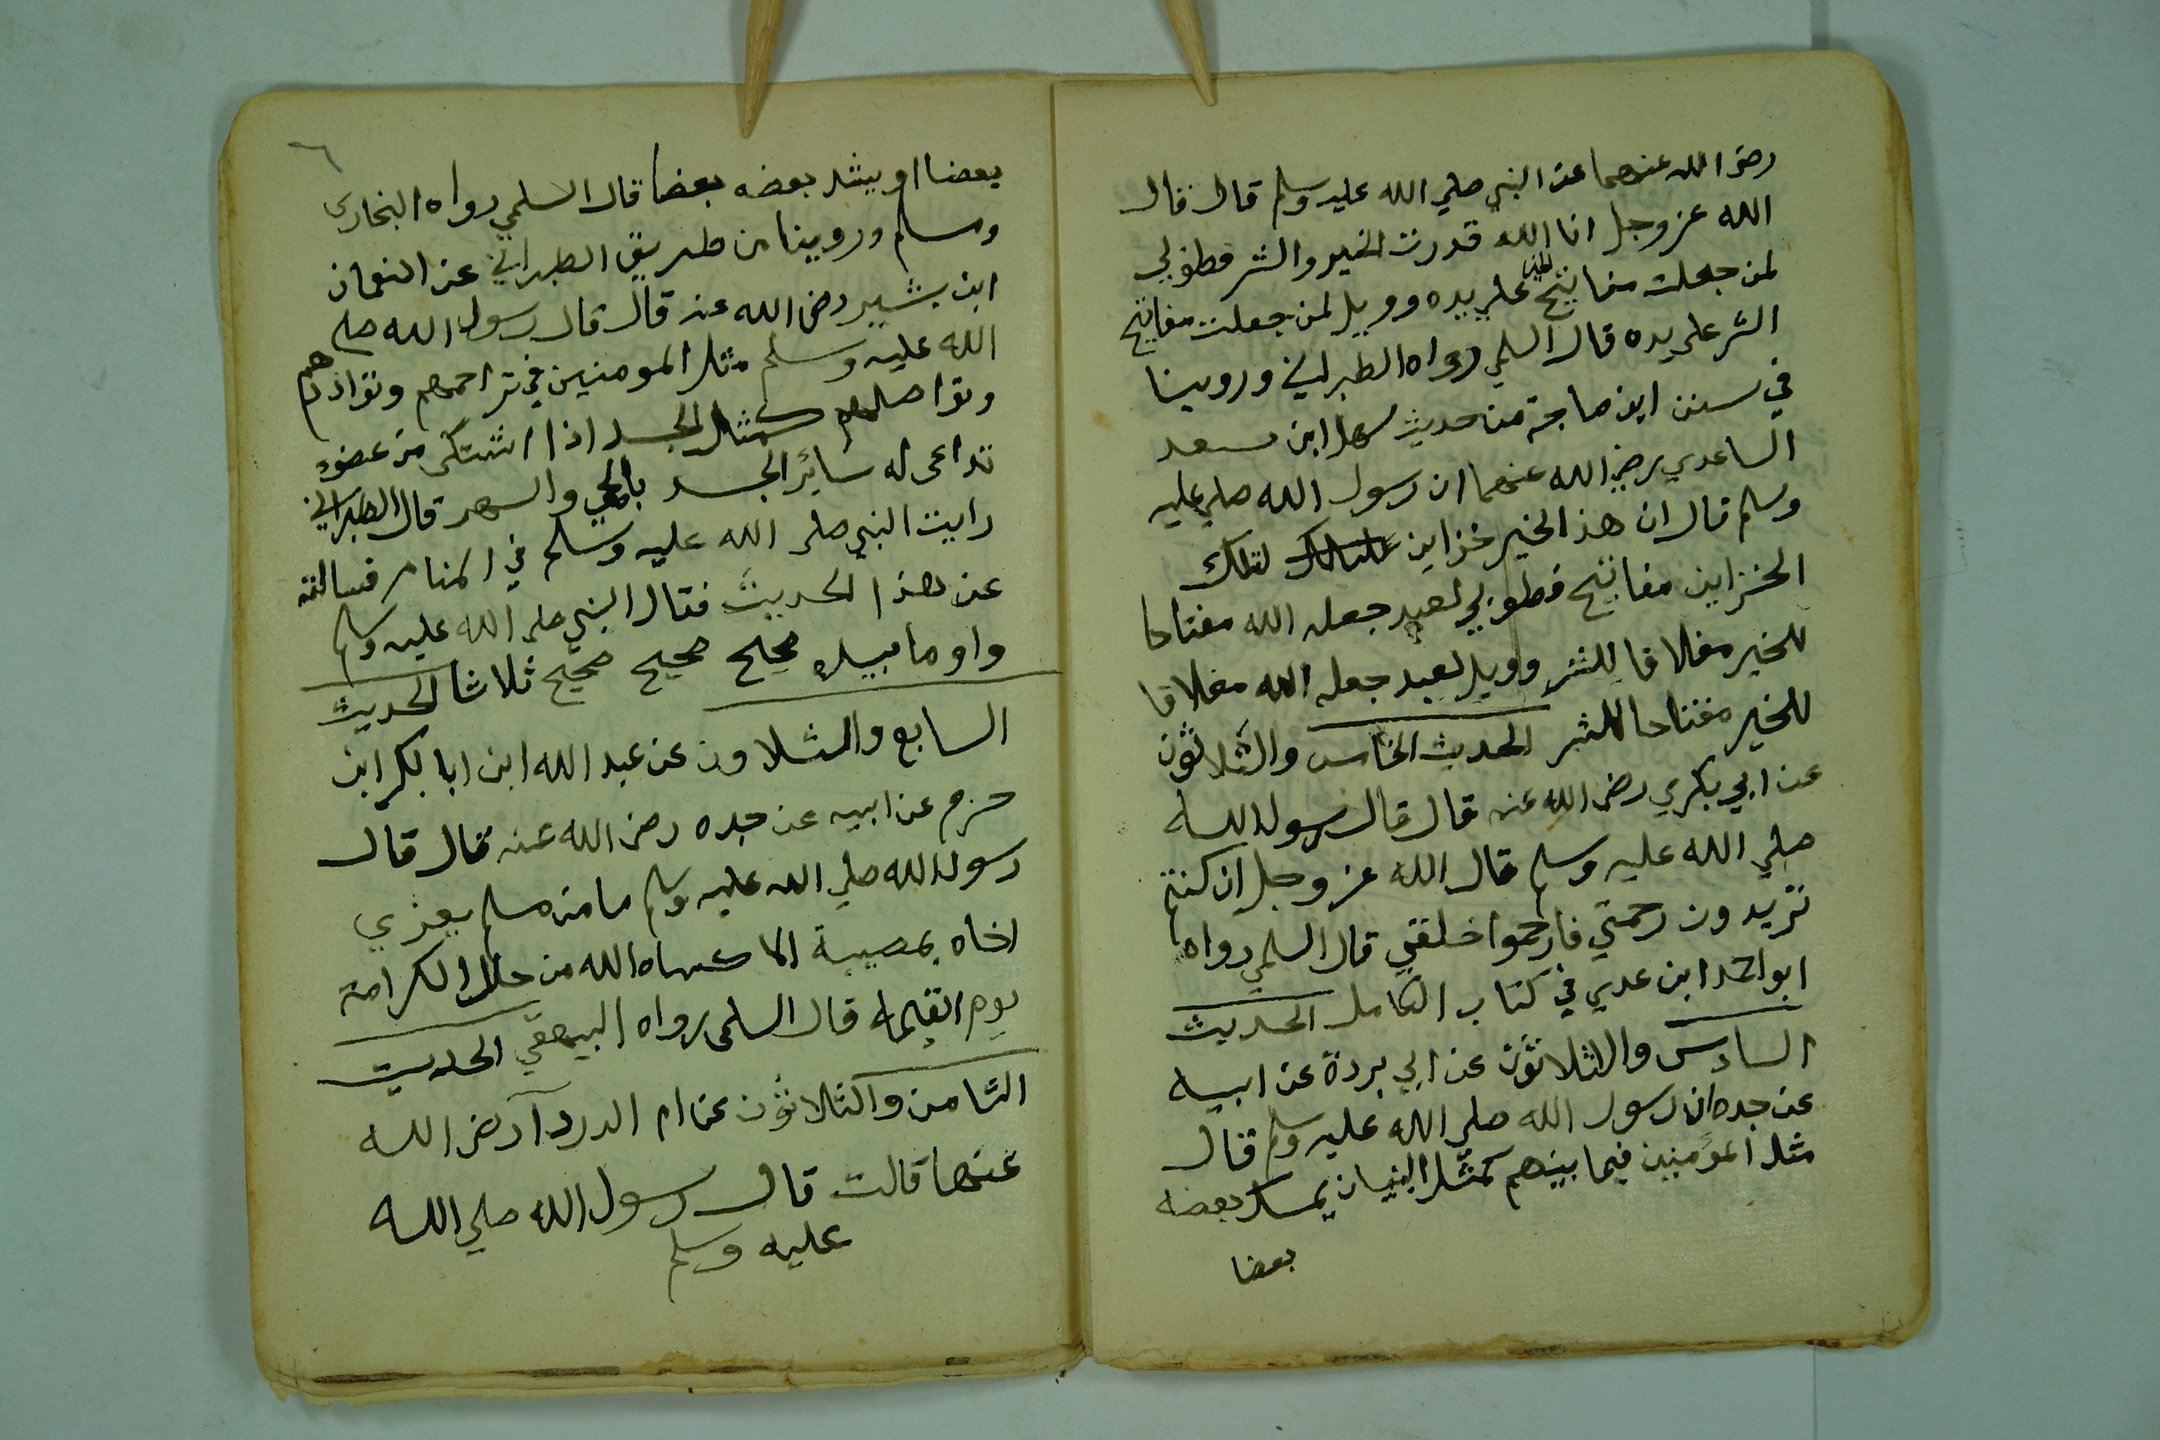 رضى الله عنهما عن النبي صلي الله عليه وسلم قال قال
الله عز وجل انا الله قدرت الخير والشر فطوبي
لمن جعلت مفاتيح الخير علي يده وويل لمن جعلت مفاتيح
الشر على يده قال السلمي رواه الطبراني وروينا
في سنن ابن ماجة من حديث سهل ابن سعد
الساعدي رضى الله عنهما ان رسول الله صلي عليه
وسلم قال ان هذ الخير خزاين لتلك
الخزاين مفاتيح فطوبي لعبد جعله الله مفتاحا
للخير مغلاقا للشر وويل لعبد جعله الله مغلاقا
للخير مفتاحا للشر الحديث الخامس والثلاثون
عن ابي بكري رضى الله عنه قال قال رسول الله
صلي الله عليه وسلم قال الله عز وجل ان كنتم
تريدون رحمتي فارحموا خلقي قال السلمي رواه
ابو احمد ابن عدي في كتاب الكامل الحديث
السادس والثلاثون عن ابي بردة عن ابيه
عن جده ان رسول الله صلي الله عليه وسلم قال
مثل المؤمنين فيما بينهم كمثل البنيان يمسك بعضه
بعضا
٦
بعضا او يشد بعضه بعضا قال السلمي رواه البخاري
ومسلم وروينا من طريق الطبراني عن النعمان
ابن بشير رضى الله عنه قال قال رسول الله صلى
الله عليه وسلم مثل المومنين في تراحمهم وتواددهم
وتواصلهم كمثل الجسد اذا اشتكى من عضو
تداعى له سائر الجسد بالحمي والسهر قال الطبراني
رايت النبي صلى الله عليه وسلم في المنام فسالته
عن هذا الحديث فقال النبي صلى الله عليه وسلم
واوما بيده صحيح صحيح صحيح ثلاثا الحديث
السابع والثلاثون عن عبد الله ابن ابا بكر ابن
حزم عن ابيه عن جده رضى الله عنه قال قال
رسول الله صلي الله عليه وسلم ما من مسلم يعزي
اخاه بمصيبة الا كساه الله من حلل الكرامة
يوم القيمة قال السلمى رواه البيهقي الحديث
الثامن والثلاثون عن ام الدرداآ رضى الله
عنها قالت قال رسول الله صلي الله
عليه وسلم